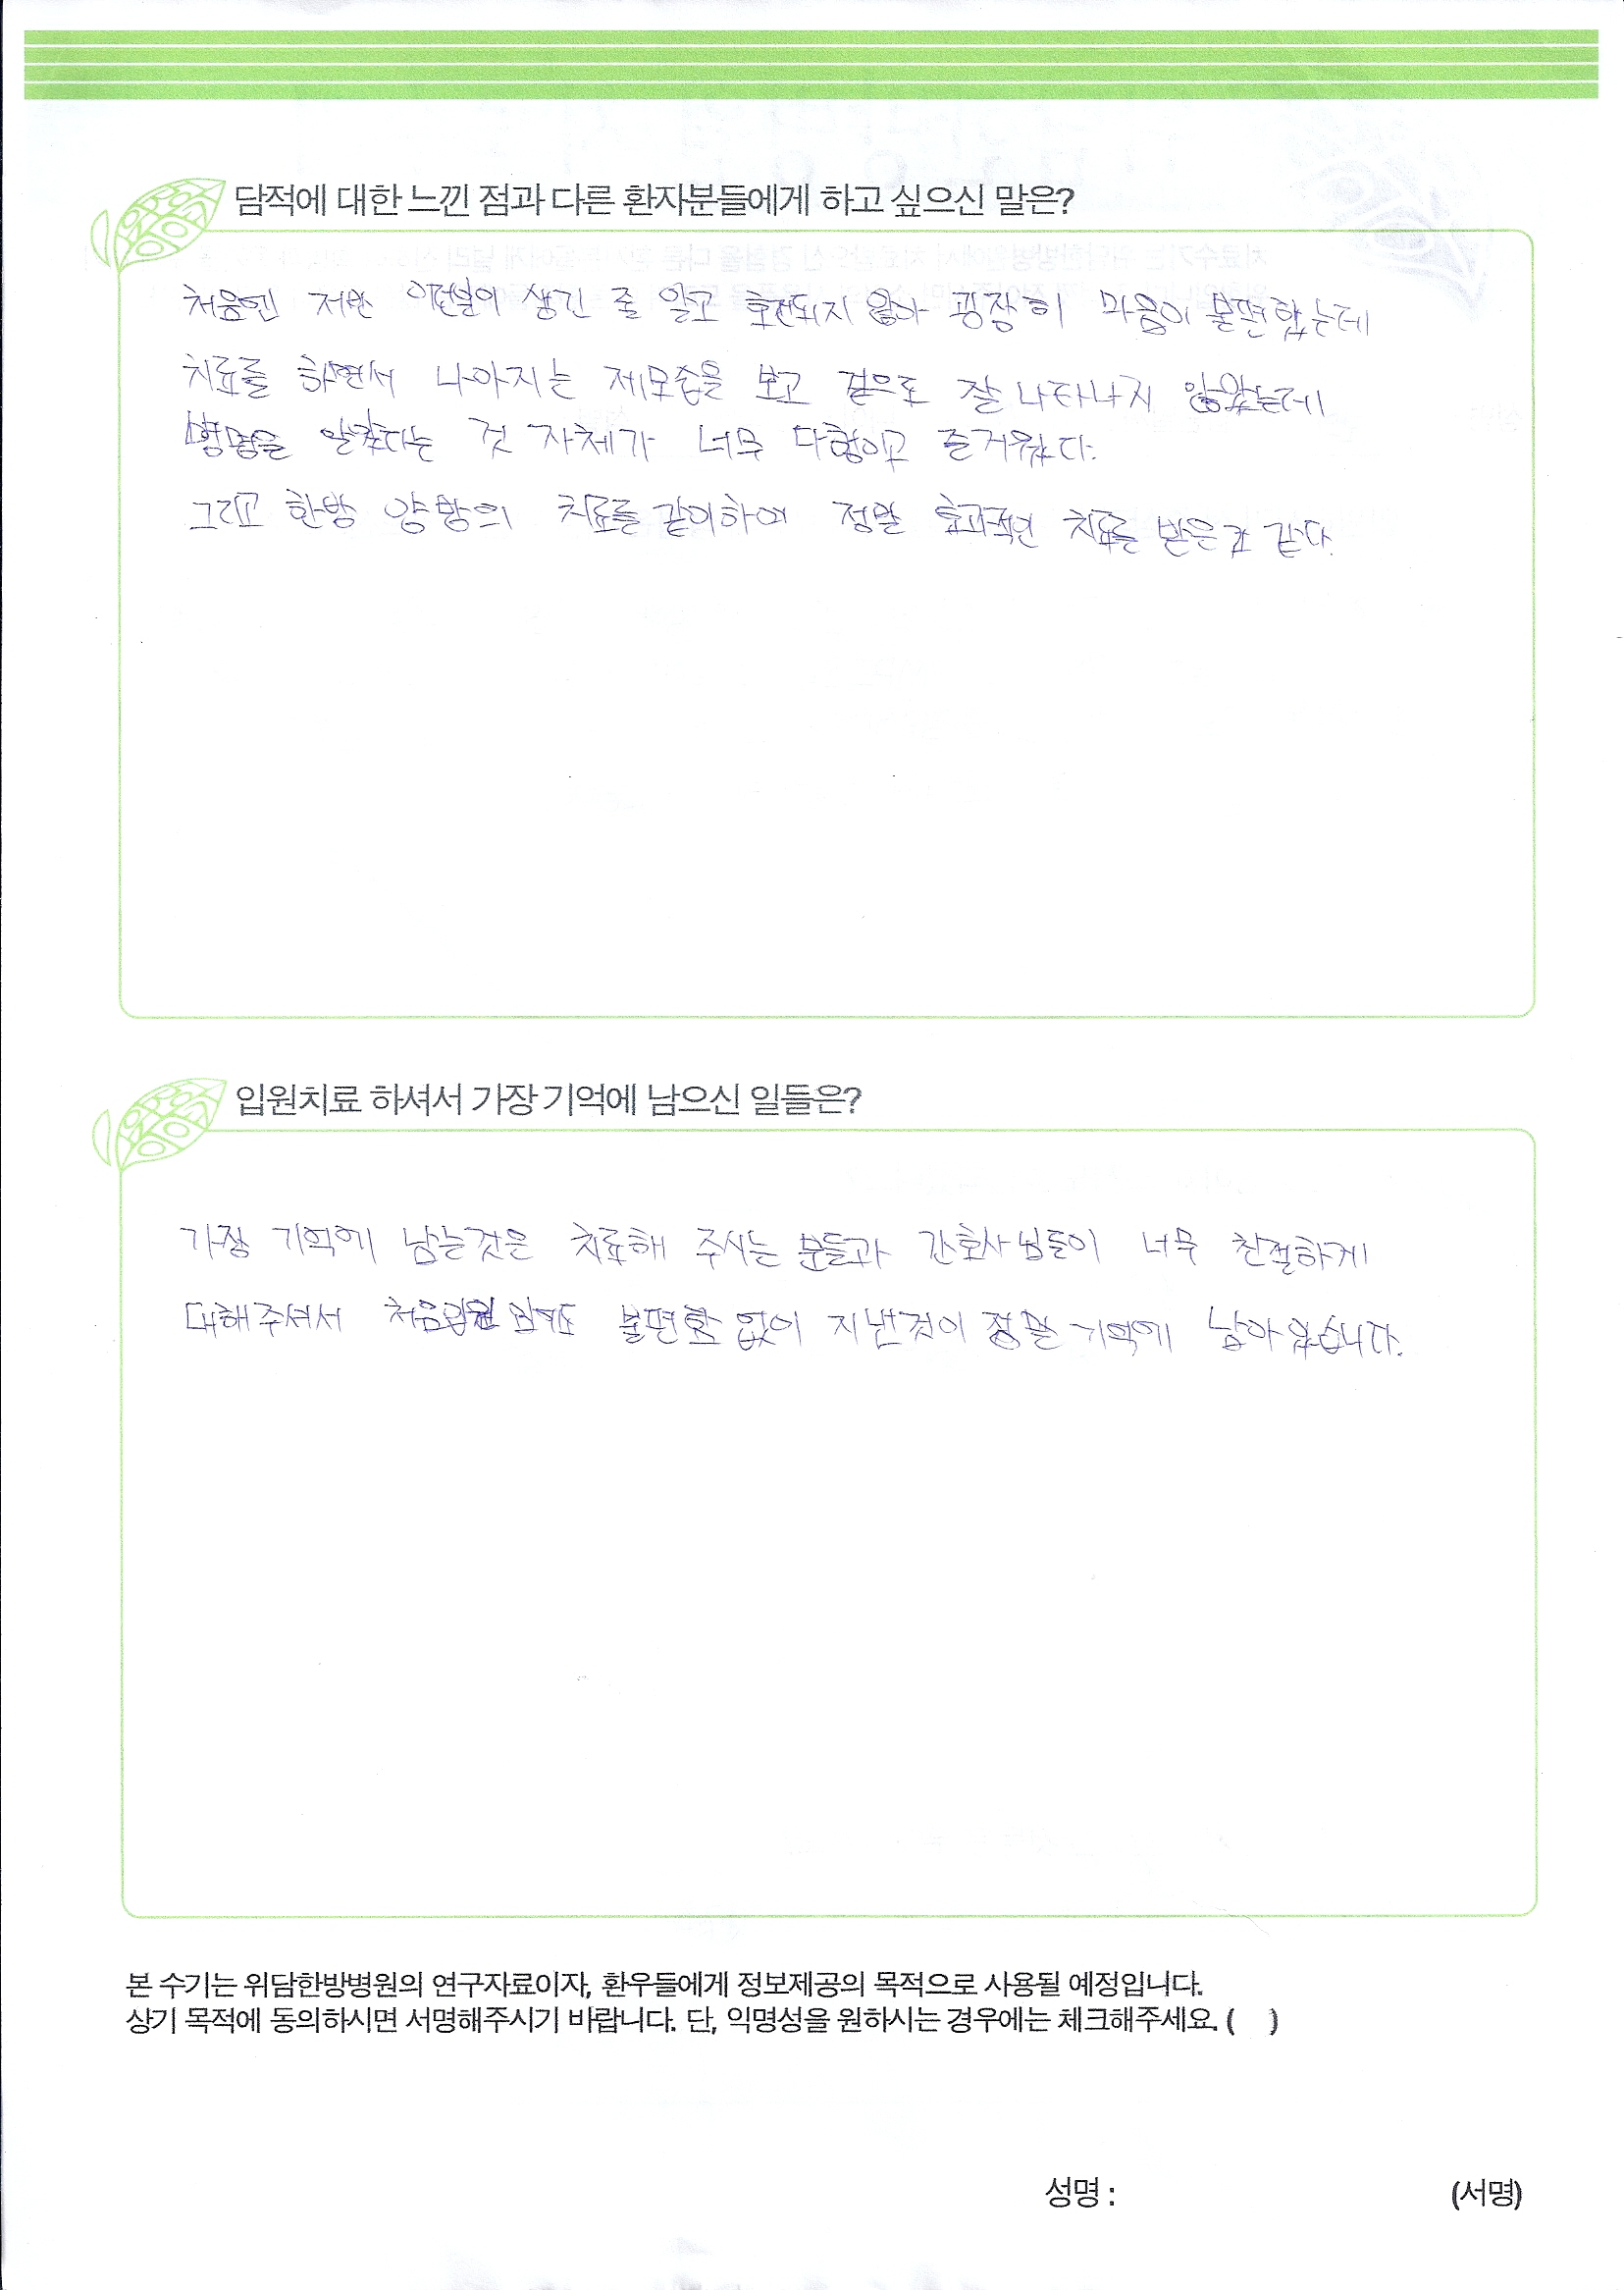 담적에 대한 느낀 점과 다른 환자분들에게 하고 싶으신 말은?
처음엔 저만 이런일이 생긴 줄 알고 호전되지 않아 굉장히 마음이 불편했는데
치료를 하면서 나아지는 제모습을 보고 겉으로 잘 나타나지 않았는데
병명을 알았다는 것 자체가 너무 다행이고 즐거웠다.
그리고 한방 양방의 치료를 같이하여 정말 효과적인 치료를 받은거 같다.
입원치료 하셔서 가장 기억에 남으신 일들은?
가장 기억에 남는것은 치료해 주시는 분들과 간호사님들이 너무 친절하게
대해주셔서 처음입원 불편함 없이 지낸것이 정말 기억에 남아있습니다.
본 수기는 위담한방병원의 연구자료이자, 환우들에게 정보제공의 목적으로 사용될 예정입니다.
상기 목적에 동의하시면 서명해주시기 바랍니다. 단, 익명성을 원하시는 경우에는 체크해주세요. ( )
성명 : (서명)